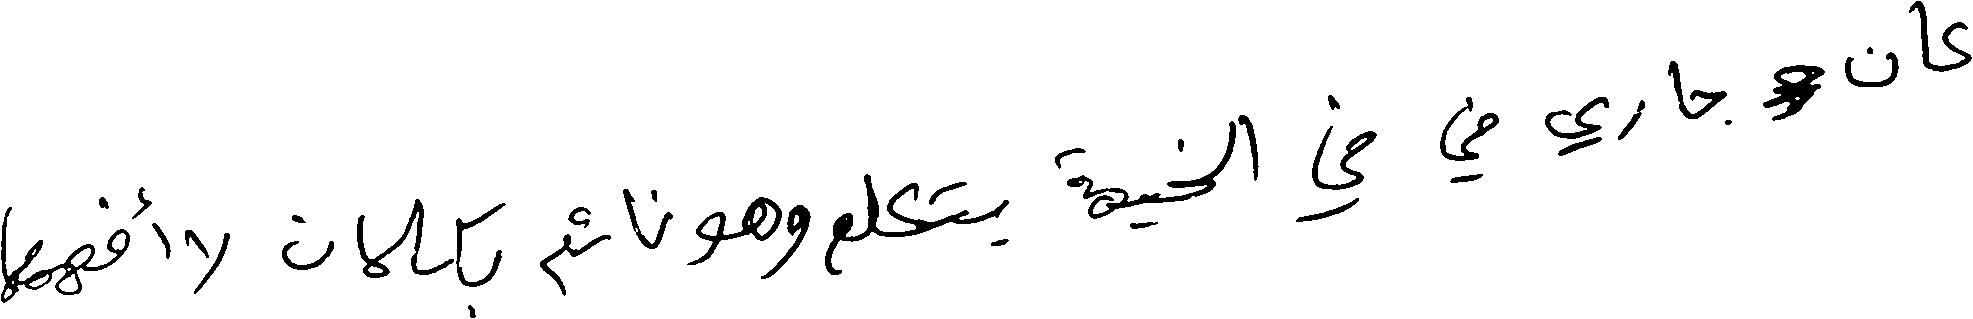 كان جاري في في الخيمة يتكلم وهو نائم بكلمات لا أفهمها